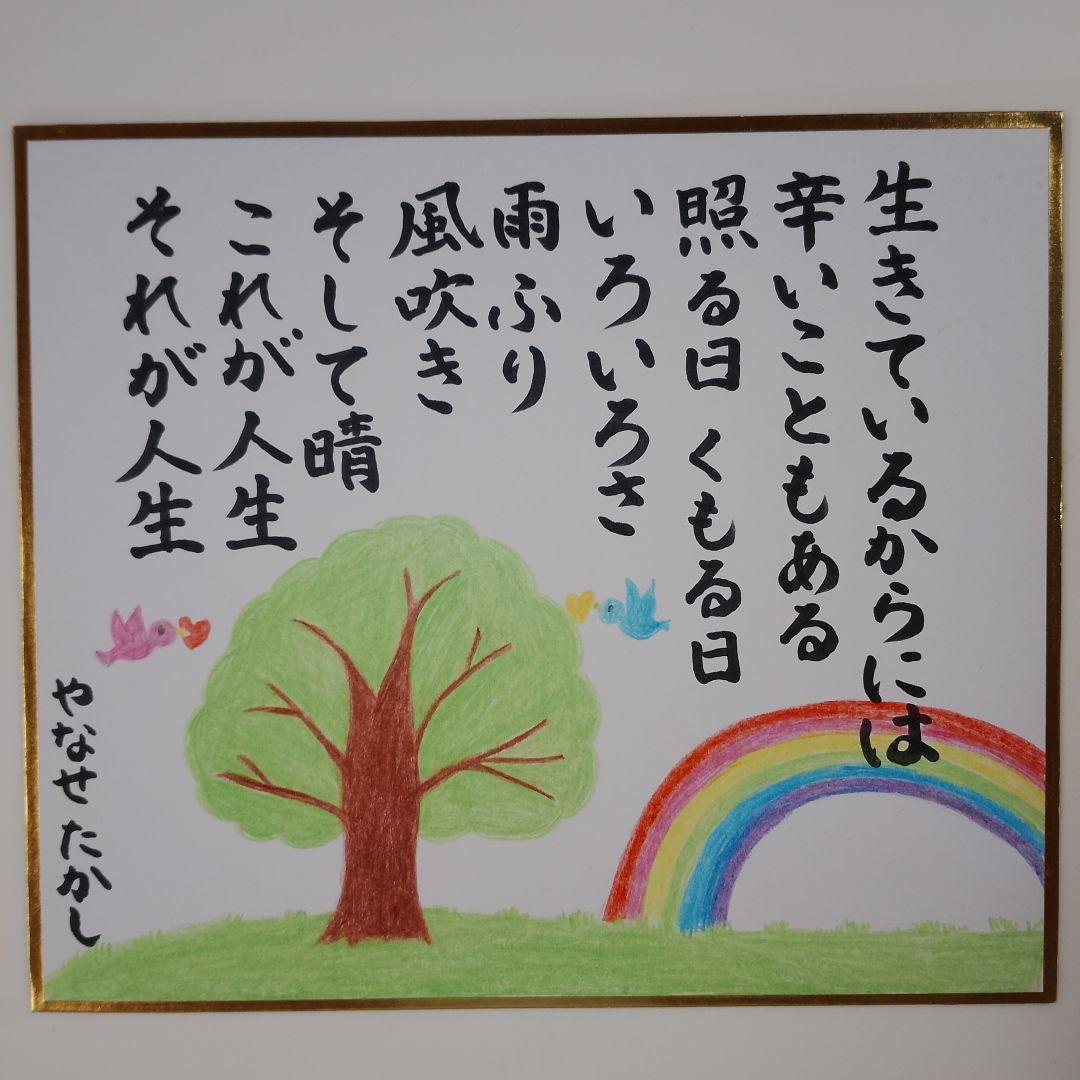 生きているからには
辛いこともある
照る日 くもる日
いろいろさ
雨ふり
風吹き
そして晴
これが人生
それが人生
やなせ たかし